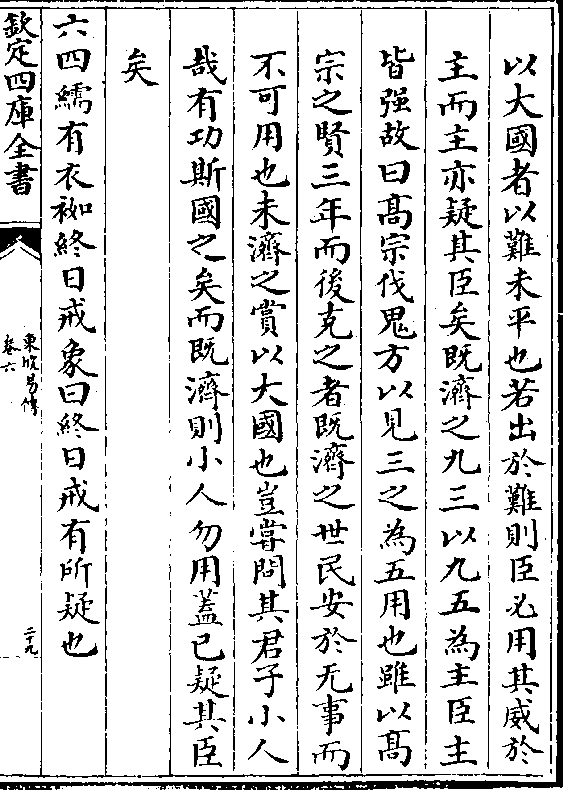 以大國者以難未平也若出於難則臣必用其威於
主而主亦疑其臣矣既濟之九三以九五為主臣主
皆强故曰髙宗伐鬼方以見三之為五用也雖以髙
宗之賢三年而後克之者既濟之世民安於无事而
不可用也未濟之賞以大國也豈嘗問其君子小人
哉有功斯國之矣而既濟則小人勿用蓋已疑其臣
矣
六四繻有衣袽終日戒象曰終日戒有所疑也
欽定四庫全書
東坡易傳
卷六
二十九